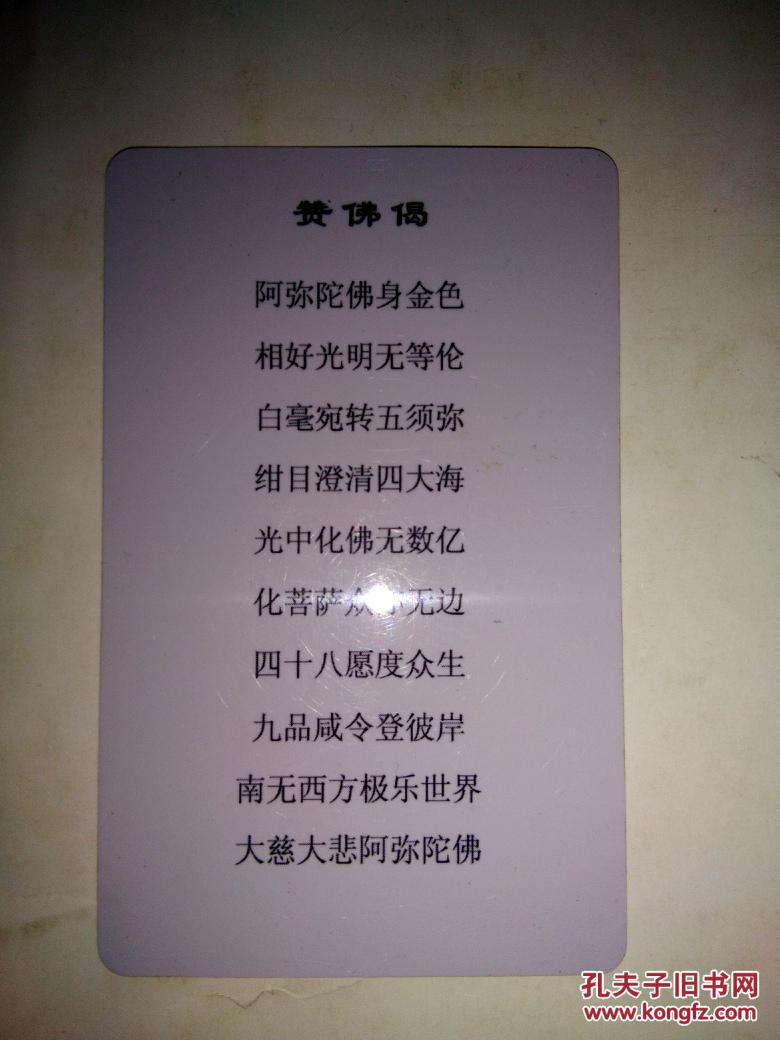 赞佛偈
阿弥陀佛身金色
相好光明无等伦
白毫宛转五须弥
绀目澄清四大海
光中化佛无数亿
化菩萨众亦无边
四十八愿度众生
九品咸令登彼岸
南无西方极乐世界
大慈大悲阿弥陀佛
孔夫子旧书网
www.kongfz.com